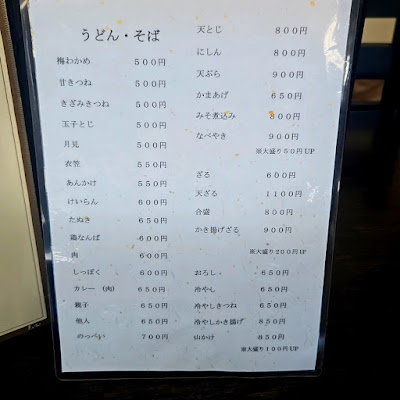 うどん・そば
梅わかめ ５００円
甘きつね ５００円
きざみきつね ５００円
玉子とじ ５００円
月見 ５００円
衣笠 ５５０円
あんかけ ５５０円
けいらん ６００円
たぬき ６５０円
鶏なんば ６００円
肉 ６００円
しっぽく ６５０円
カレー（肉） ６５０円
親子 ６５０円
他人 ６５０円
のっぺい ７００円
天とじ ８００円
にしん ８００円
天ぷら ９００円
かまあげ ６５０円
みそ煮込み ８００円
なべやき ９００円
※大盛り５０円UP
ざる ６００円
天ざる １１００円
合盛 ８００円
かき揚げざる ９００円
※大盛り２００円UP
おろし ６５０円
冷やし ６５０円
冷やしきつね ６５０円
冷やしかき揚げ ８５０円
山かけ ８５０円
※大盛り１００円UP